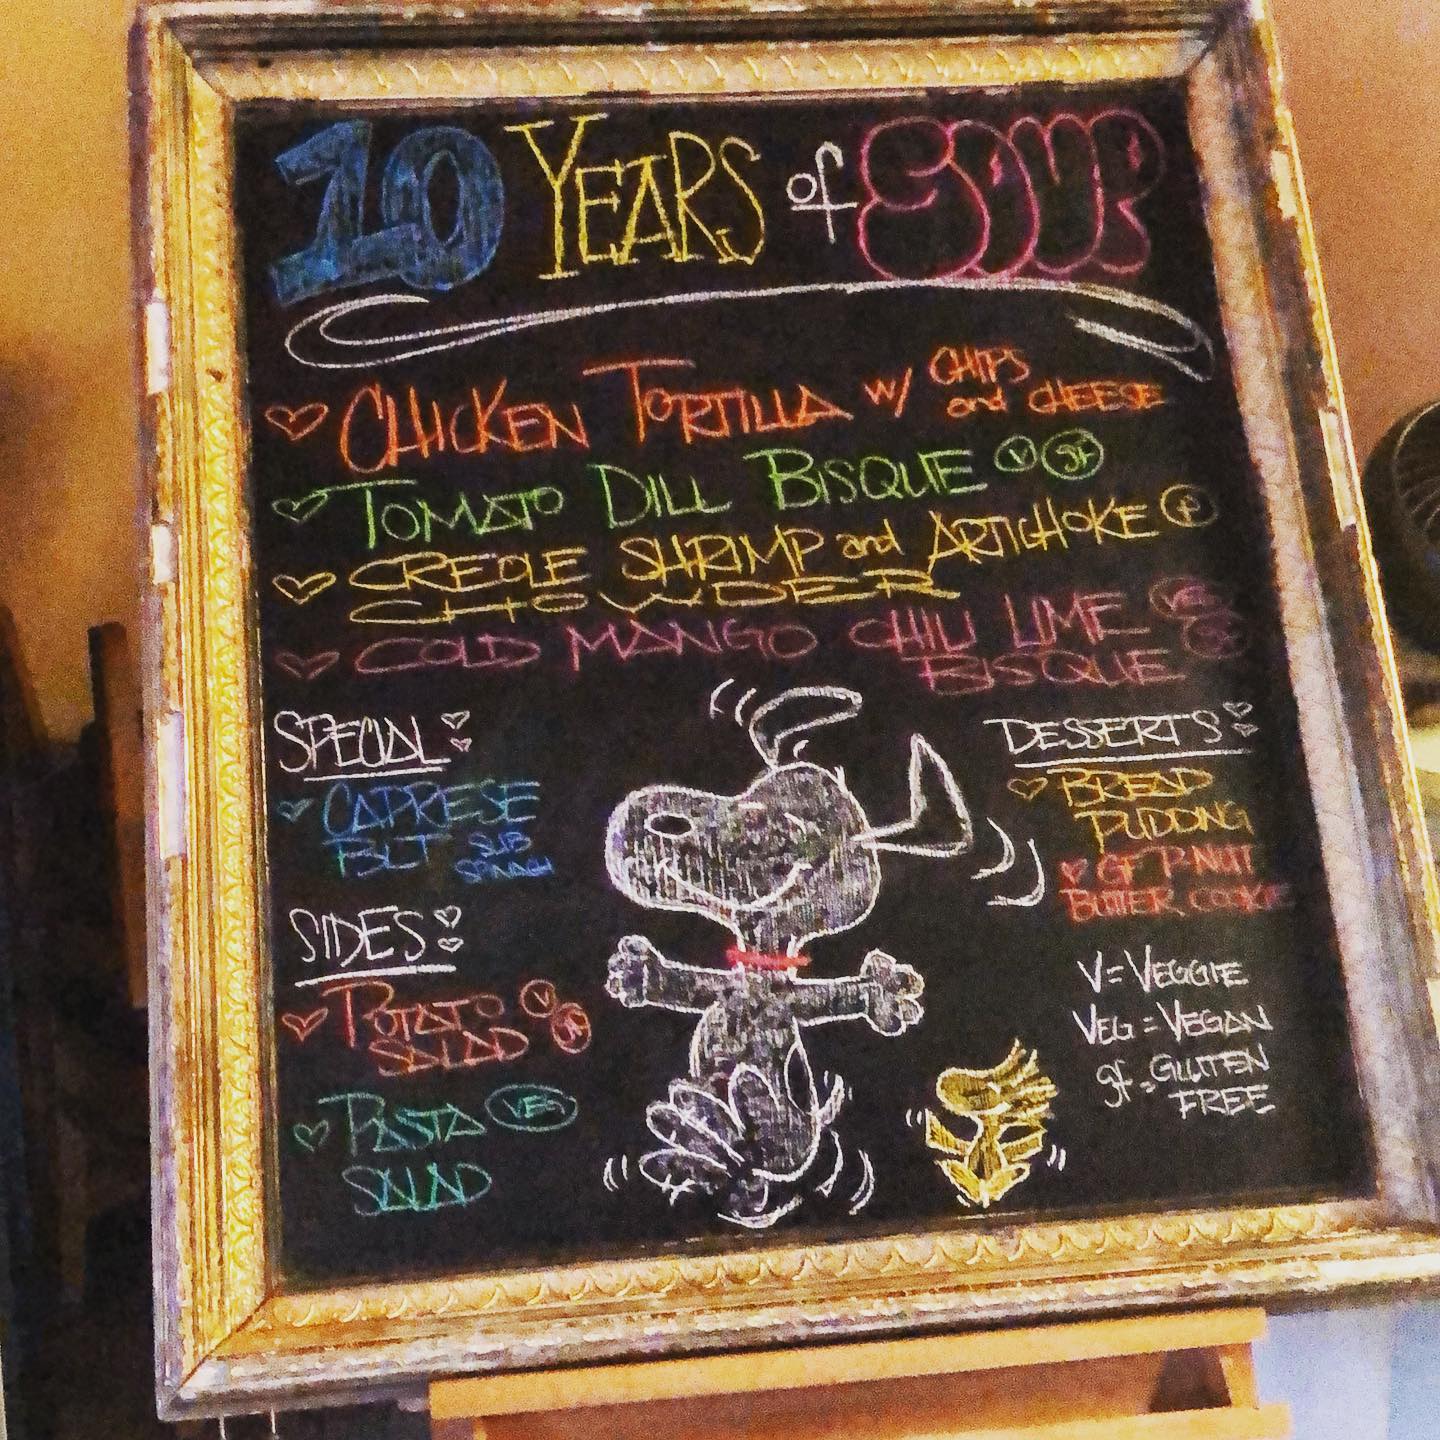 10 YEARS of SOUP
CHICKEN TORTILLA W/ CHIPS
and CHEESE
TOMATO DILL BISQUE V gf
CREOLE SHRIMP and ARTICHOKE
CHOWDER
COLD MANGO CHILI LIME VEG
BISQUE
SPECIAL:
CAPRESE
BLT SUB
SPINACH
SIDES:
POTATO V
SALAD GF
PASTA VEG
SALAD
DESSERTS:
BREAD
PUDDING
GF P-NUT
BUTTER COOKIE
V = VEGGIE
VEG = VEGAN
gf = GLUTEN
FREE